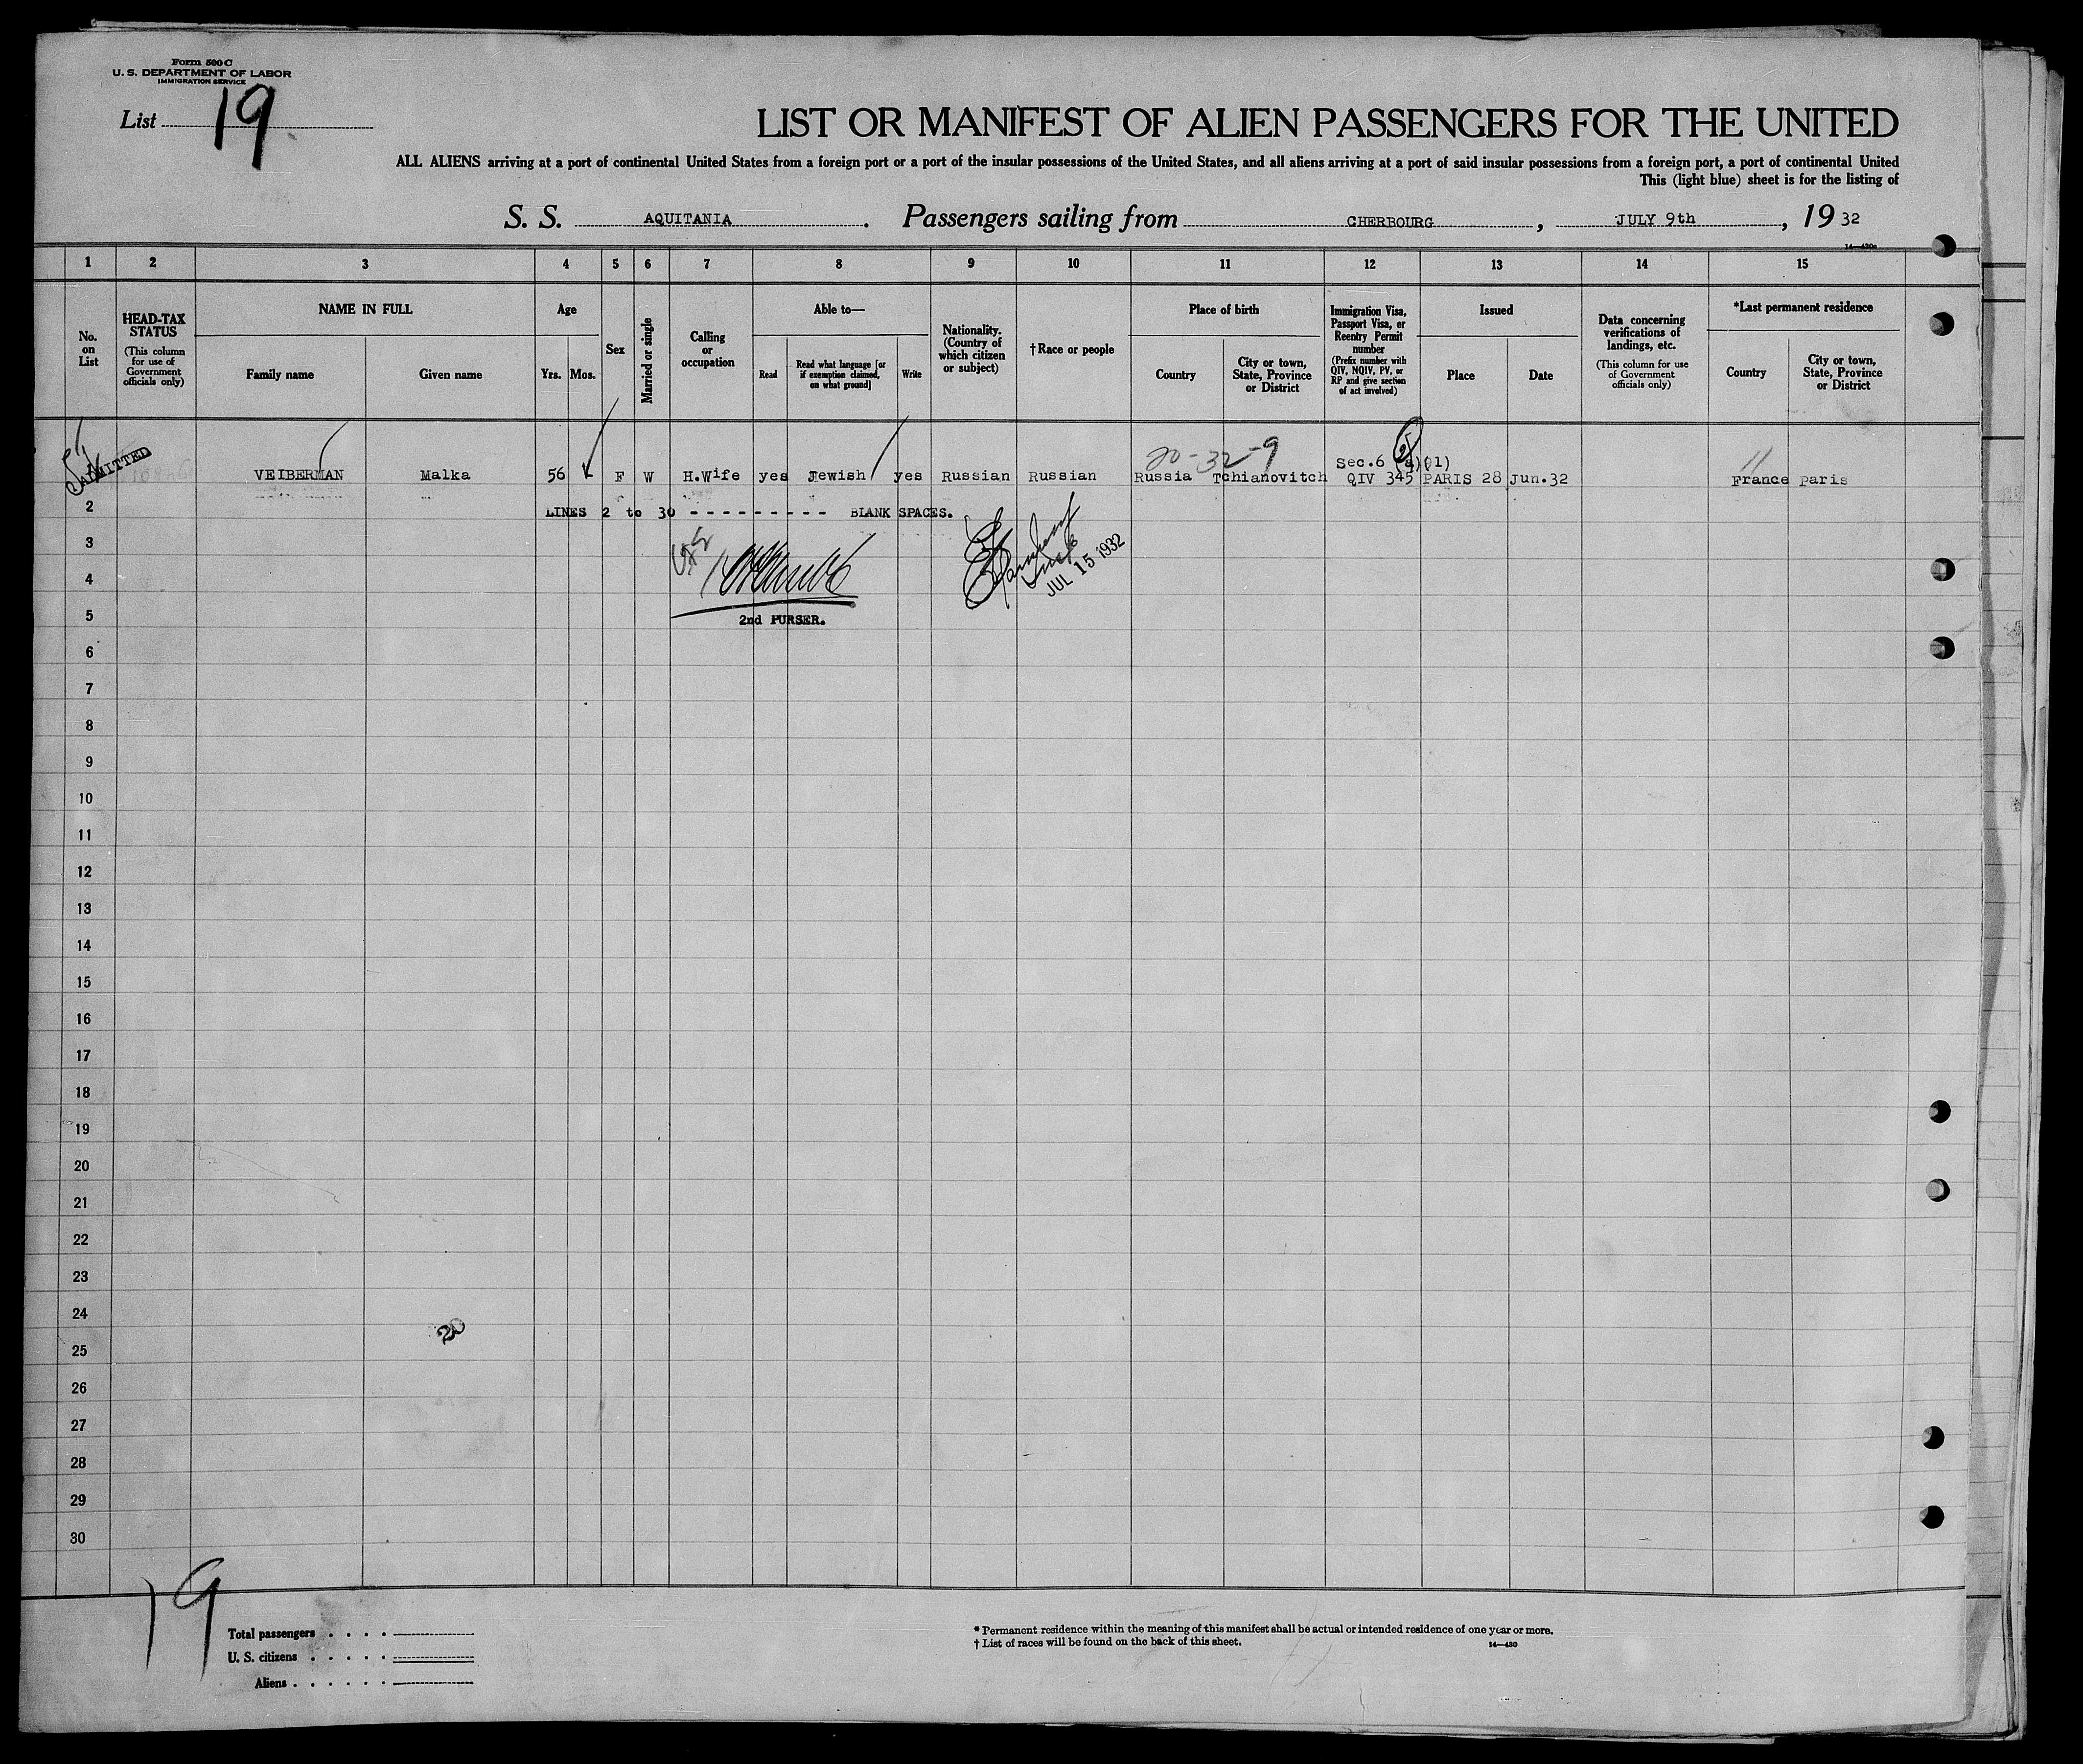 Form 500 C
U. S. DEPARTMENT OF LABOR
IMMIGRATION SERVICE
List 19
LIST OR MANIFEST OF ALIEN PASSENGERS FOR THE UNITED
ALL ALIENS arriving at a port of continental United States from a foreign port or a port of the insular possessions of the United States, and all aliens arriving at a port of said insular possessions from a foreign port, a port of continental United
This (light blue) sheet is for the listing of
S. S. AQUITANIA. Passengers sailing from CHERBOURG, JULY 9th, 1932
14—430a
1 2 3 4 5 6 7 8 9 10 11 12 13 14 15
No. on List
HEAD-TAX STATUS
(This column for use of Government officials only)
NAME IN FULL
Family name
Given name
Age
Yrs. Mos.
Sex
Married or single
Calling or occupation
Able to—
Read
Read what language [or if exemption claimed, on what ground]
Write
Nationality. (Country of which citizen or subject)
† Race or people
Place of birth
Country
City or town, State, Province or District
Immigration Visa, Passport Visa, or Reentry Permit number
(Prefix number with QIV, NQIV, PV, or RP and give section of act involved)
Issued
Place
Date
Data concerning verifications of landings, etc.
(This column for use of Government officials only)
*Last permanent residence
Country
City or town, State, Province or District
ADMITTED
20-32-9
Sec.6 (a)(1)
1 VEIBERMAN Malka 56 F W H.Wife yes Jewish yes Russian Russian Russia Tchianovitch QIV 345 PARIS 28 Jun.32 France paris
2 LINES 2 to 30 - - - - - - - - - - BLANK SPACES.
3
JUL 15 1932
4
5
2nd PURSER.
6
7
8
9
10
11
12
13
14
15
16
17
18
19
20
21
22
23
24
20
25
26
27
28
29
30
19
Total passengers . . . .
U. S. citizens . . . . .
Aliens . . . . . .
* Permanent residence within the meaning of this manifest shall be actual or intended residence of one year or more.
† List of races will be found on the back of this sheet.
14—430